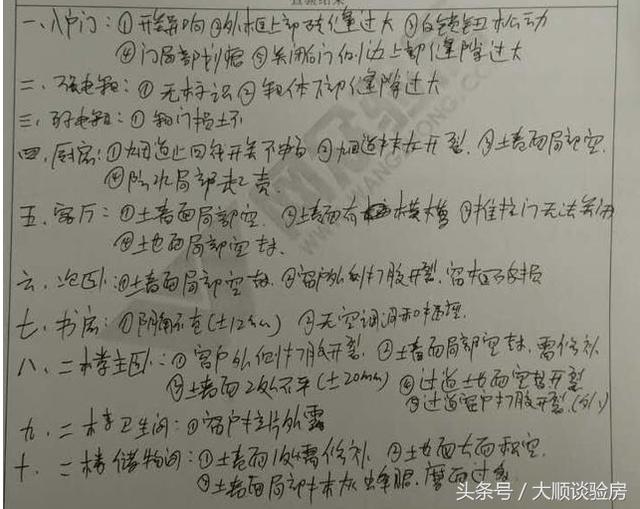 验房结果
一、入户门：①开关异响 ②外框上部砖缝过大 ③反锁钮松动
④门局部划痕 ⑤关闭后门侧边上部缝隙过大
二、强电箱：①无标识 ②箱体下部缝隙过大
三、弱电箱：①箱门损坏
四、厨房：①烟道止回阀开关不 ②烟道抹灰开裂 ③墙面局部空
④防水局部起
五、客厅：①墙面局部空 ②墙面有横 ③推拉门无法关闭
④地面局部空鼓.
六、次卧：①墙面局部空鼓. ②窗户外侧打胶开裂. 窗框破损
七、书房：①阴角不直(±12mm) ②无空调洞和插座.
八、二楼主卧：①窗户外侧打胶开裂. ②墙面局部空鼓. 需修补
③墙面2处不平(±20mm) ④过道地面空鼓开裂
⑤过道窗户打胶开裂.(外)
九、二楼卫生间：①窗户垫片外露
十、二楼储物间：①墙面1处需修补. ②地面大面积空.
③墙面局部抹灰 露面过多
头条号 / 大顺谈验房